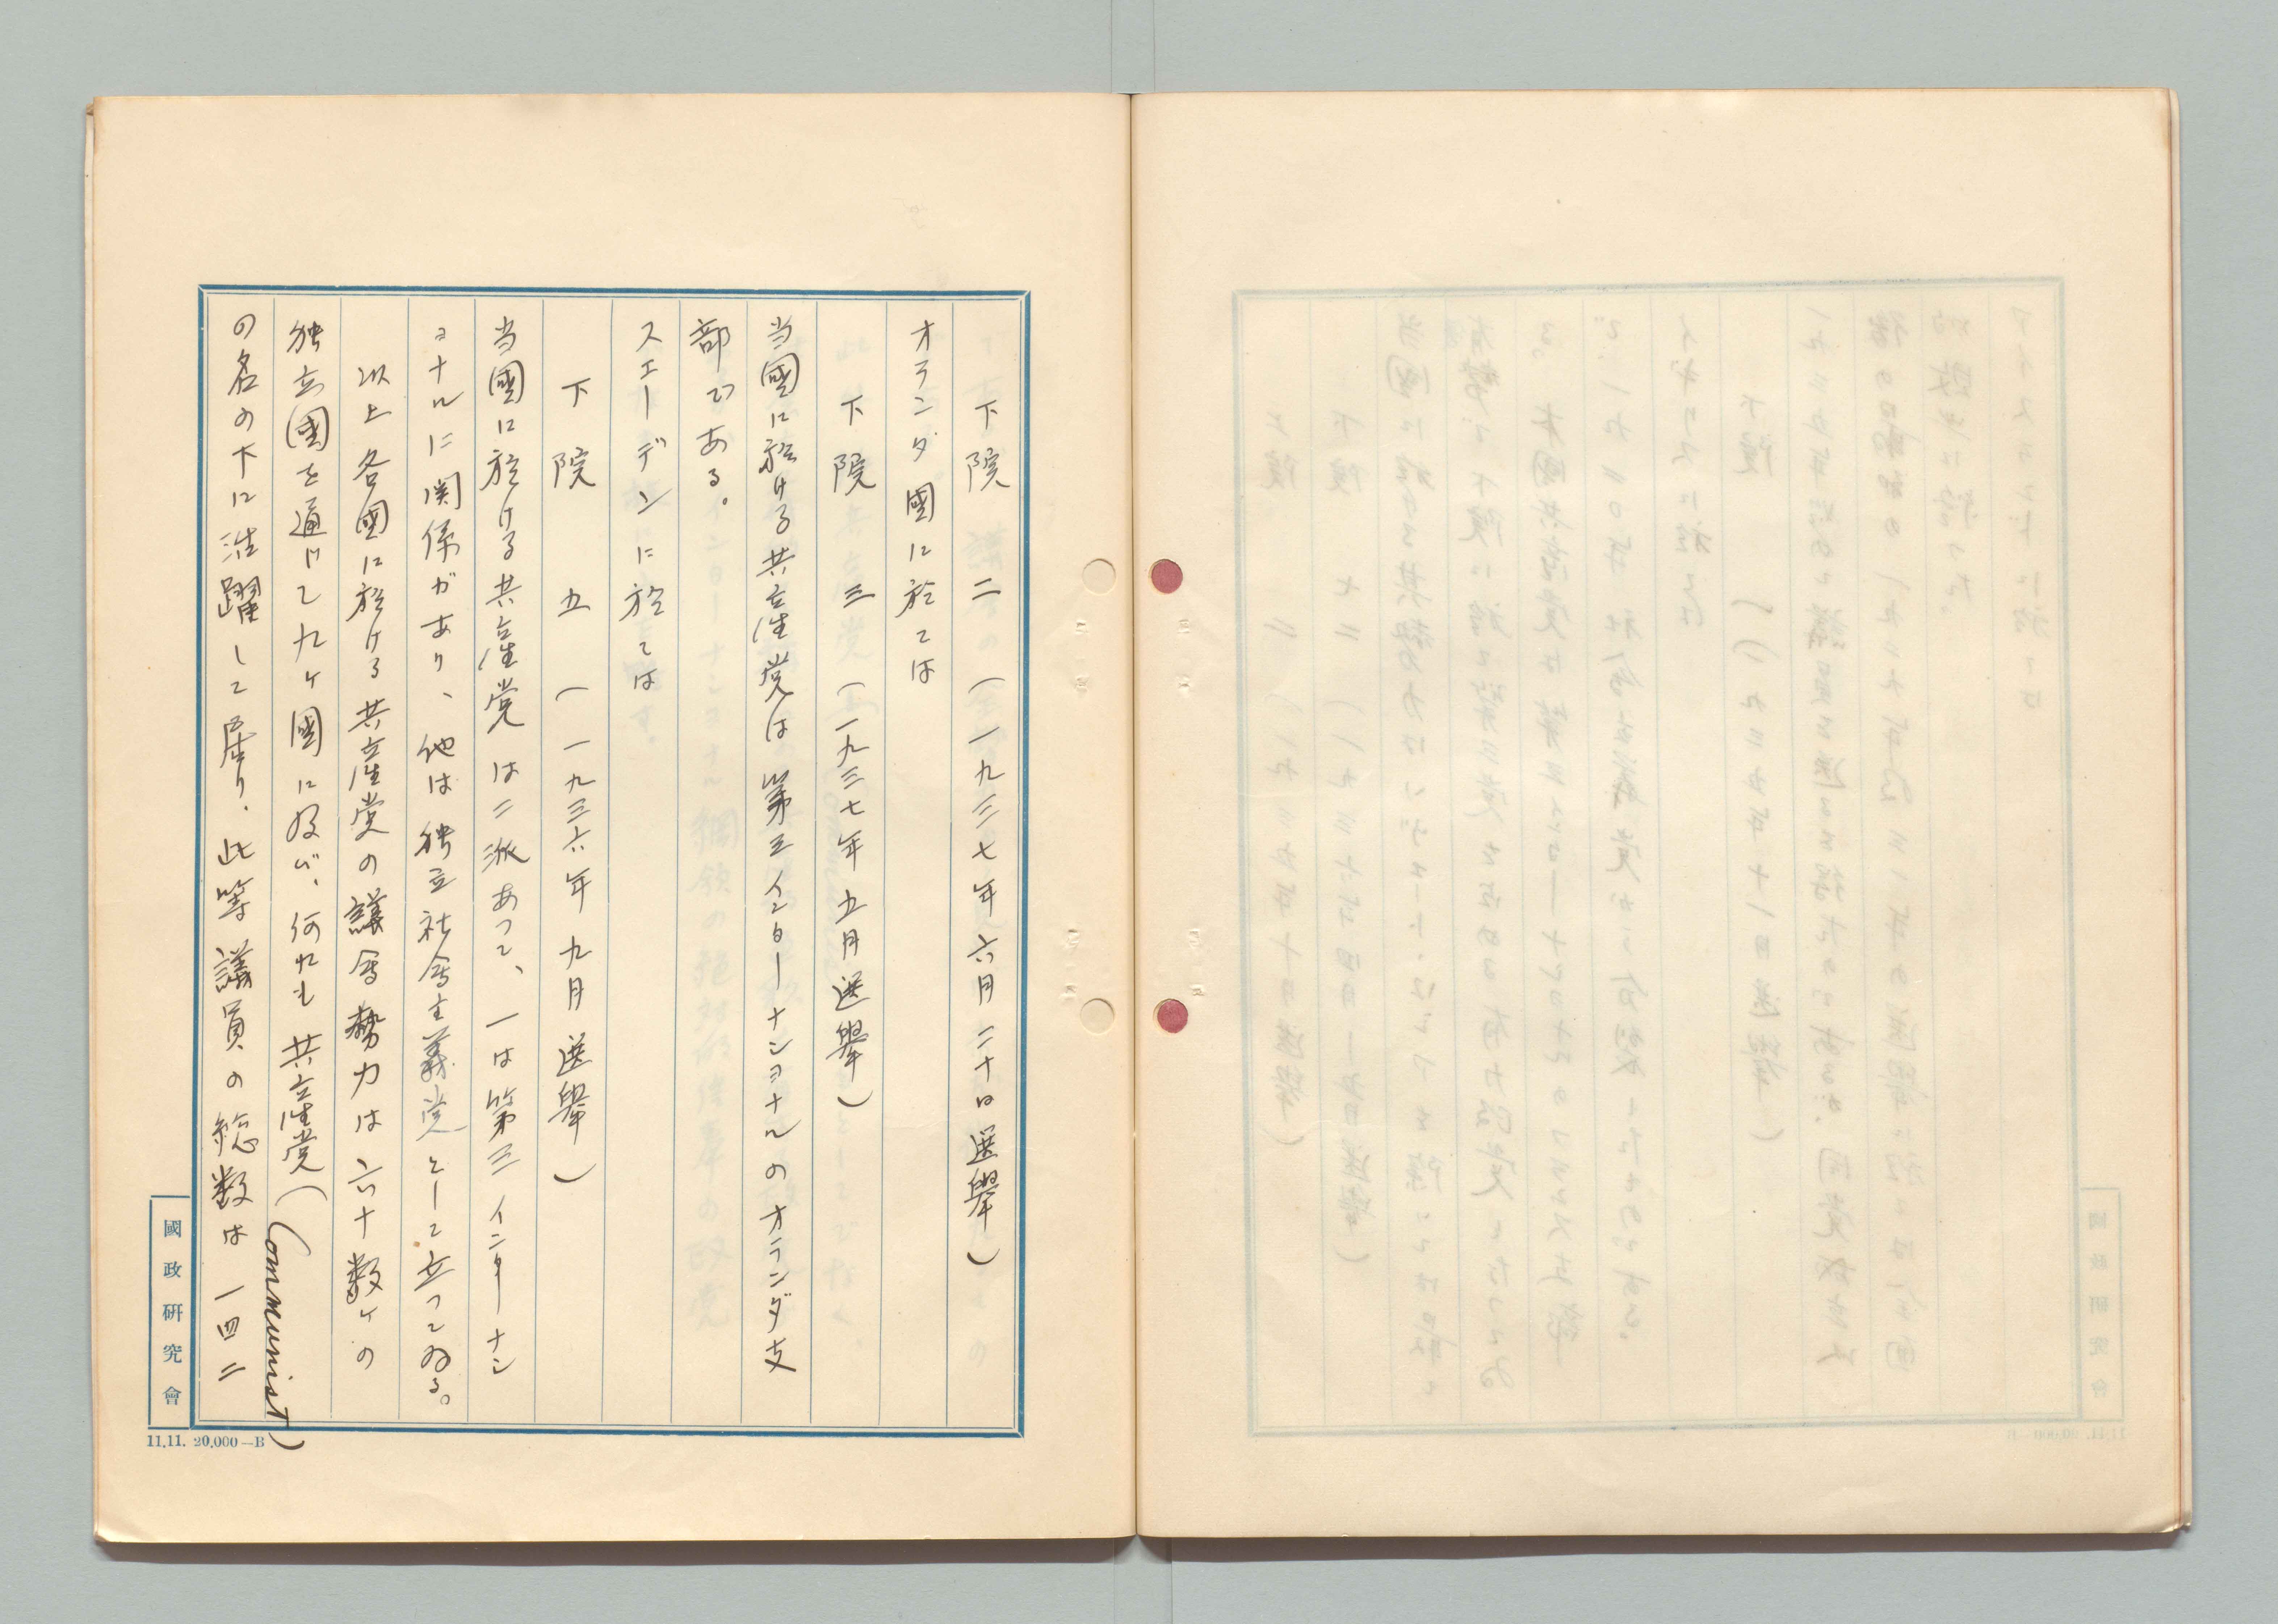 下院　二　（一九三七年六月二十日選擧）
オランダ國に於ては
下院　三　（一九三七年五月選擧）
当國に於ける共産党は第三インターナショナルのオランダ支
部である。
スエーデンに於ては
下院　五　（一九三六年九月選擧）
当國に於ける共産党は二派あつて、一は第三インターナシ
ョナルに関係があり、他は独立社会主義党として立つてゐる。
以上各國に於ける共産党の議会勢力は六十数ヶの
独立國を通じて九ヶ國に及び、何れも共産党（Communist）
の名の下に活躍して居り、此等議員の総数は一四二
國政研究會
11.11. 20,000—B